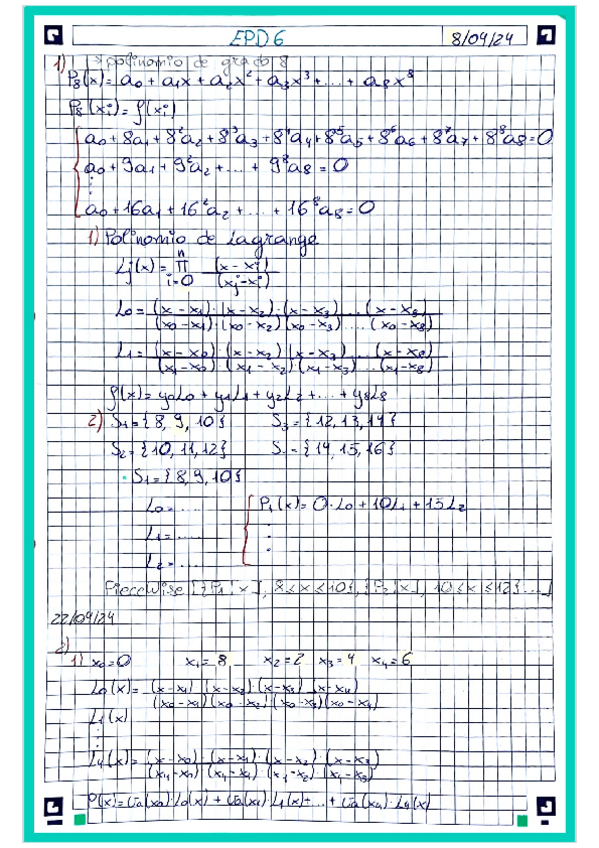 EPD6 8/04/24
1) → polinomio de grado 8
P₈(x) = a₀ + a₁x + a₂x² + a₃x³ + ... + a₈x⁸
P₈(xᵢ) = f(xᵢ)
a₀ + 8a₁ + 8²a₂ + 8³a₃ + 8⁴a₄ + 8⁵a₅ + 8⁶a₆ + 8⁷a₇ + 8⁸a₈ = 0
a₀ + 9a₁ + 9²a₂ + ... + 9⁸a₈ = 0
⋮
a₀ + 16a₁ + 16²a₂ + ... + 16⁸a₈ = 0
1) Polinomio de Lagrange
Lj(x) = n π i=0 (x - xᵢ) / (xj - xᵢ)
L₀ = (x - x₁)·(x - x₂)·(x - x₃) ... (x - x₈) / (x₀ - x₁)·(x₀ - x₂)(x₀ - x₃) ... (x₀ - x₈)
L₁ = (x - x₀)·(x - x₂)(x - x₃) ... (x - x₈) / (x₁ - x₀)·(x₁ - x₂)·(x₁ - x₃) ... (x₁ - x₈)
f(x) = y₀L₀ + y₁L₁ + y₂L₂ + ... + y₈L₈
2) S₁ = {8, 9, 10} S₃ = {12, 13, 14}
S₂ = {10, 11, 12} S. = {14, 15, 16}
· S₁ = {8, 9, 10}
L₀ = ..... P₁(x) = 0·L₀ + 10L₁ + 15L₂
L₁ = ..... ⋮
L₂ = .....
Piecewise [{P₁[x], 8 ≤ x ≤ 10}, {P₂[x], 10 ≤ x ≤ 12} ...]
22/04/24
2)
1) x₀ = 0 x₁ = 8 x₂ = 2 x₃ = 4 x₄ = 6
L₀(x) = (x - x₁)(x - x₂)·(x - x₃)(x - x₄) / (x₀ - x₁)(x₀ - x₂)(x₀ - x₃)(x₀ - x₄)
L₁(x)
⋮
L₄(x) = (x - x₀)·(x - x₁)·(x - x₂)·(x - x₃) / (x₄ - x₀)·(x₄ - x₁)·(x₄ - x₂)·(x₄ - x₃)